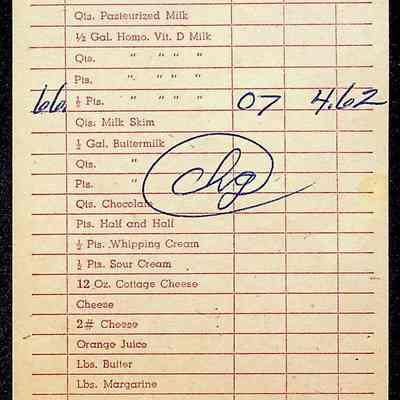 Qts. Pasteurized Milk
½ Gal. Homo. Vit. D Milk
Qts. " " " "
Pts. " " " "
66 ½ Pts. " " " " 07 4.62
Qts. Milk Skim
½ Gal. Buttermilk
Qts. "
Pts. "
chg
Qts. Chocolate
Pts. Half and Half
½ Pts. Whipping Cream
½ Pts. Sour Cream
12 Oz. Cottage Cheese
Cheese
2# Cheese
Orange Juice
Lbs. Butter
Lbs. Margarine